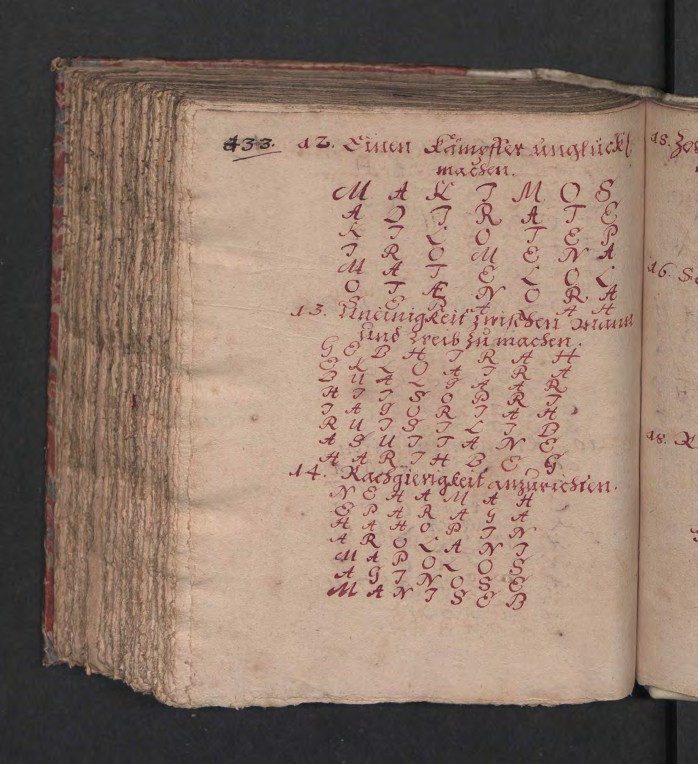 433. 12. Einen Kämpffer unglückl
machen.
M A K I M O S
A D I R A T E
K I L O T E P
I R O M E N A
M A T E L O L
O T Æ N O R A
S E P A L A H
13. Uneinigkeit zwischen Mann
und Weib zu machen.
G E B H I R A H
E L L O A I R A
B U A L G A A R
H I I S O P R I
I A G O R I A H
R U I S I L I D
A S U I T A N E
H A R I H B E G
14. Rachgierigkeit anzurichten.
N E H A M A H
E P A R A G A
H A H O P I N
A R O L A N I
M A P O L O S
A G I N O S E
M A N I S E B
15.
16. S
18.